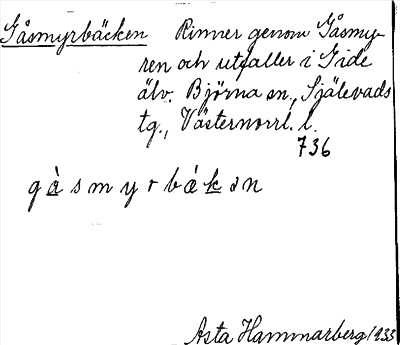 Gåsmyrbäcken Rinner genom Gåsmy-
ren och utfaller i Gide
älv. Björna sn., Själevads
tg., Västernorrl. l.
736
gàsmyrbákən
Asta Hammarberg 1933